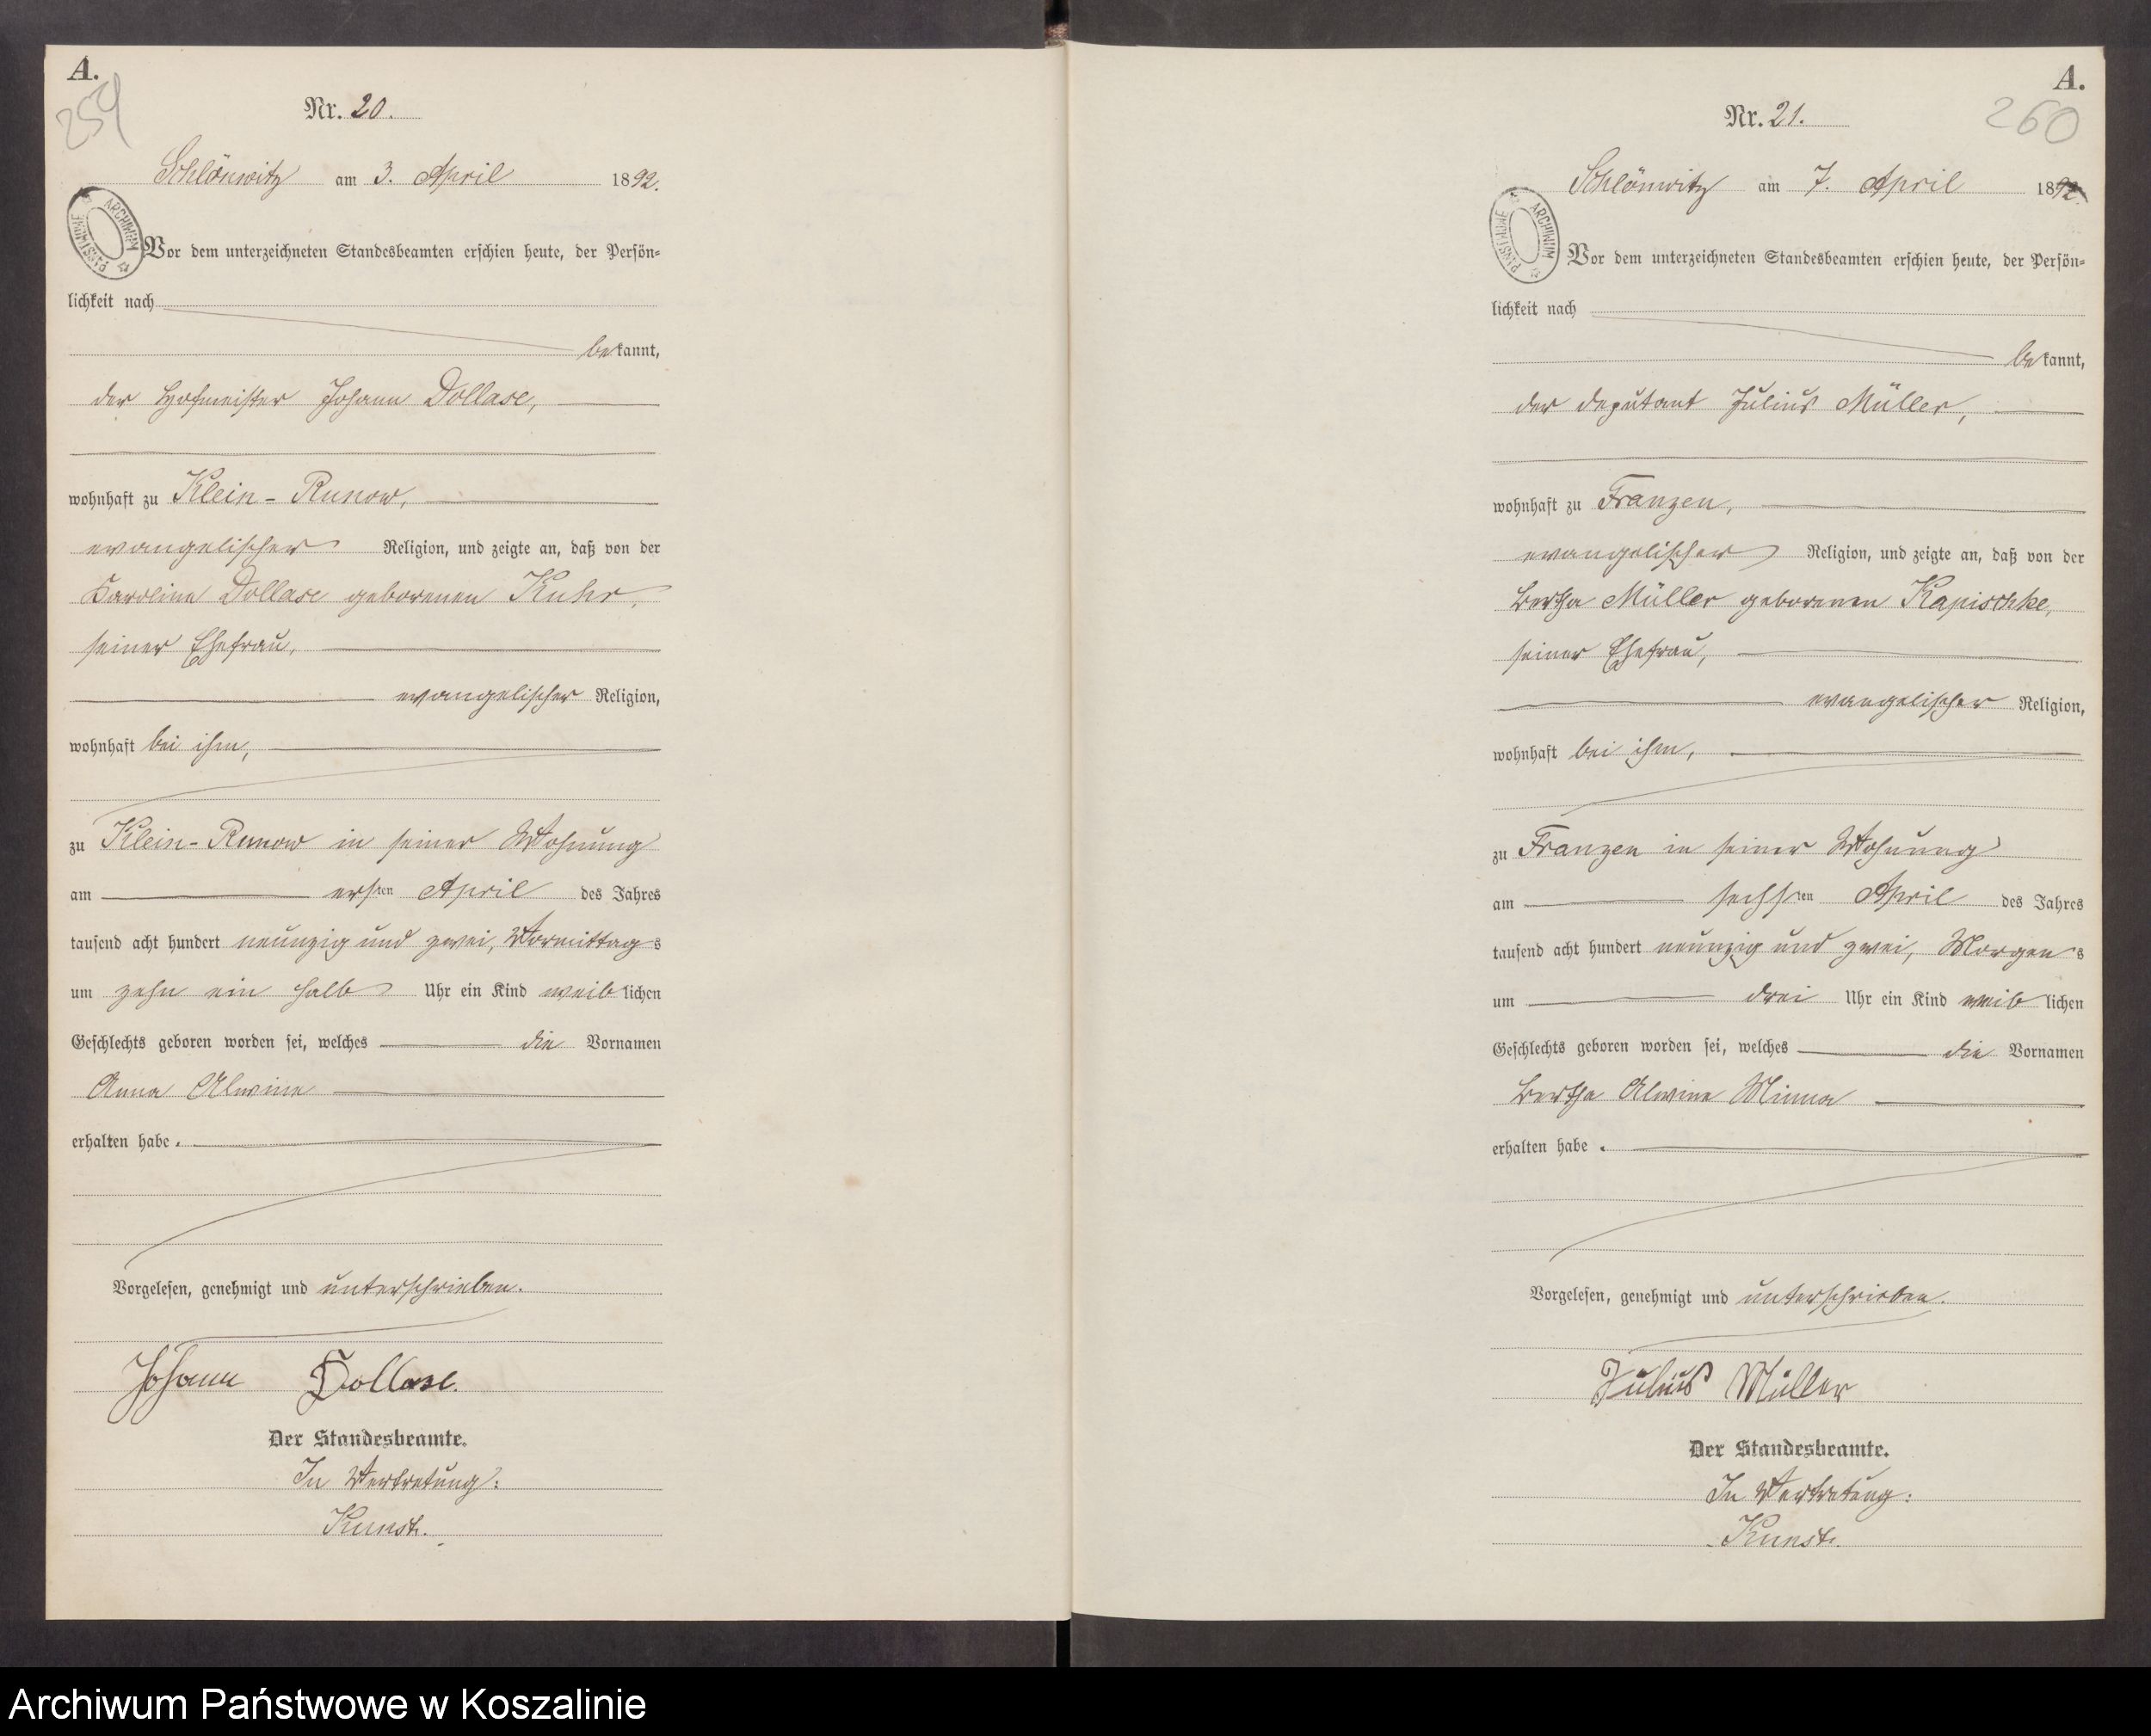 A.
259
Nr. 20.
Schlönwitz am 3. April 1892.
ARCHIWUM PAŃSTWOWE
Vor dem unterzeichneten Standesbeamten erschien heute, der Persön=
lichkeit nach
bekannt,
der Hofmeister Johann Dollase,
wohnhaft zu Klein-Runow,
evangelischer Religion, und zeigte an, daß von der
Karoline Dollase geborenen Kuhr,
seiner Ehefrau,
evangelischer Religion,
wohnhaft bei ihm,
zu Klein-Runow in seiner Wohnung
am ersten April des Jahres
tausend acht hundert neunzig und zwei, Vormittags
um zehn ein halb Uhr ein Kind weiblichen
Geschlechts geboren worden sei, welches die Vornamen
Anna Alwine
erhalten habe.
Vorgelesen, genehmigt und unterschrieben.
Johann Dollase.
Der Standesbeamte.
In Vertretung:
Kunst.
A.
260
Nr. 21.
Schlönwitz am 7. April 1892.
ARCHIWUM PAŃSTWOWE
Vor dem unterzeichneten Standesbeamten erschien heute, der Persön=
lichkeit nach
bekannt,
der Deputant Julius Müller,
wohnhaft zu Franzen,
evangelischer Religion, und zeigte an, daß von der
Bertha Müller geborenen Kapischke,
seiner Ehefrau,
evangelischer Religion,
wohnhaft bei ihm,
zu Franzen in seiner Wohnung
am sechsten April des Jahres
tausend acht hundert neunzig und zwei, Morgens
um drei Uhr ein Kind weiblichen
Geschlechts geboren worden sei, welches die Vornamen
Bertha Alwine Minna
erhalten habe.
Vorgelesen, genehmigt und unterschrieben.
Julius Müller
Der Standesbeamte.
In Vertretung:
Kunst.
Archiwum Państwowe w Koszalinie